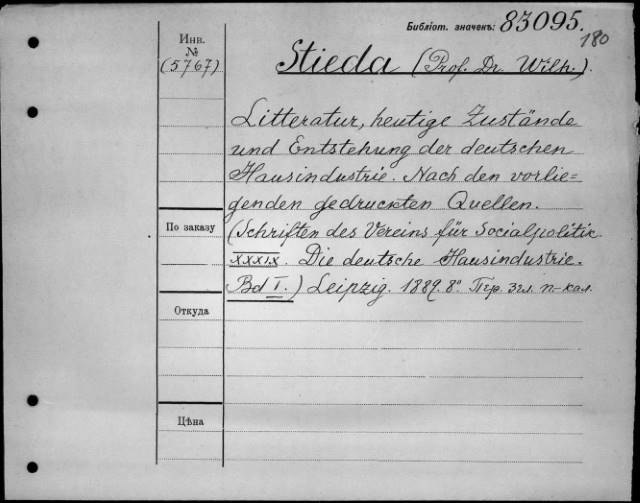 Библіот. значекъ: 83095.
180
Инв.
№
(5767)
Stieda (Prof. Dr. Wilh.).
Litteratur, heutige Zustände
und Entstehung der deutschen
Hausindustrie. Nach den vorlie-
genden gedruckten Quellen.
(Schriften des Vereins für Socialpolitik
XXXIX. Die deutsche Hausindustrie.
Bd I.) Leipzig. 1889. 8º. Пгр. згл. п-кал.
По заказу
Откуда
Цѣна